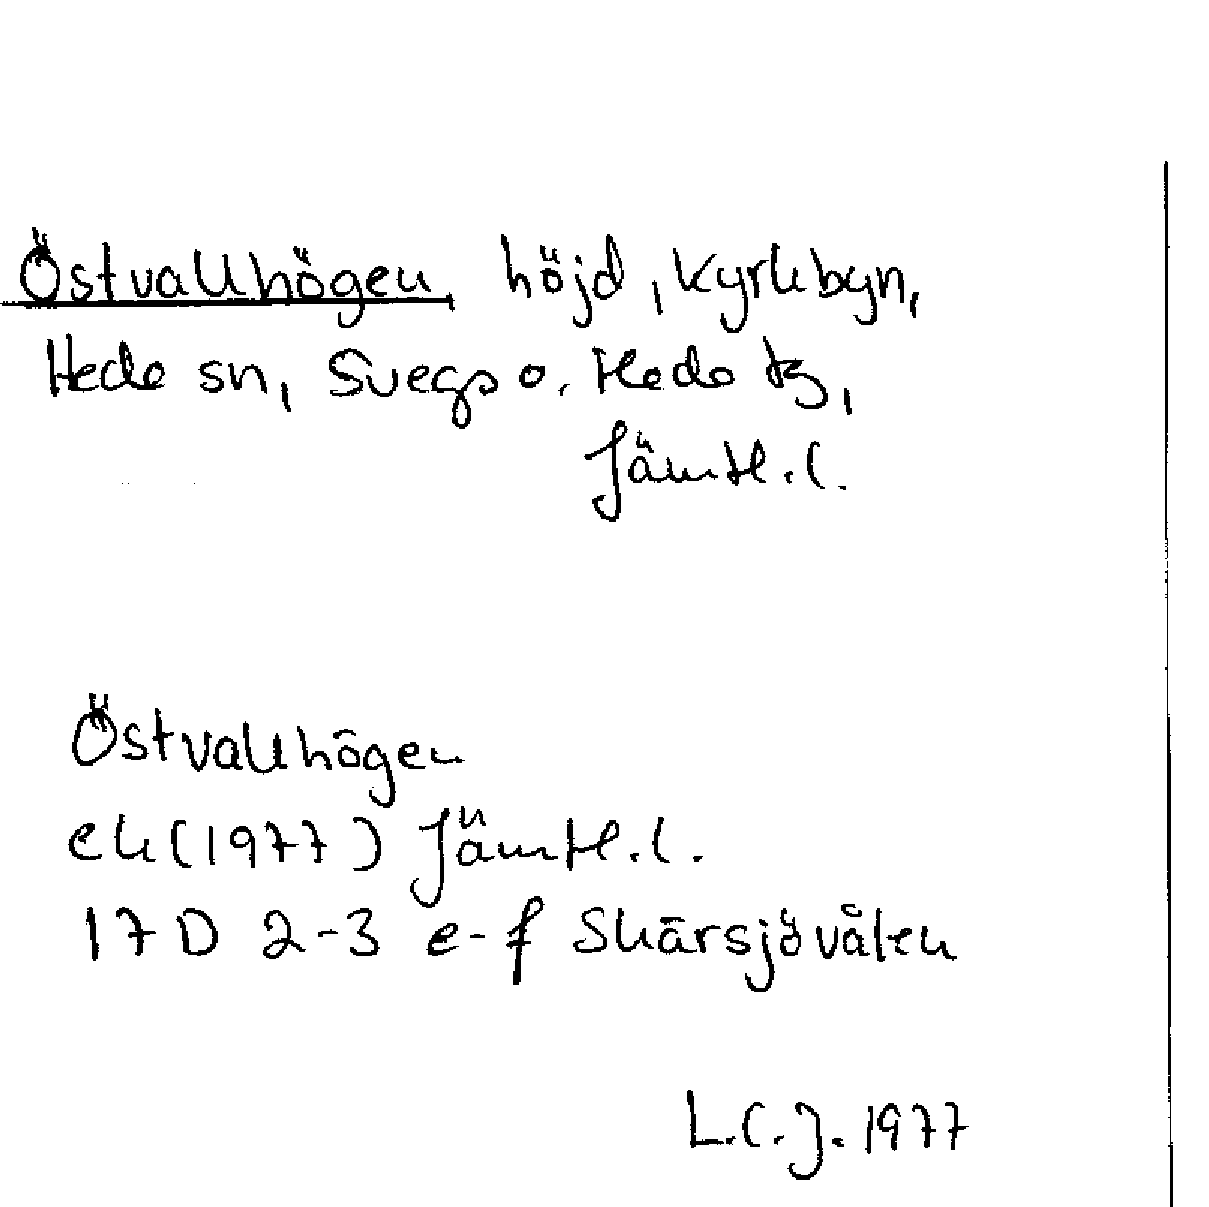 Östvallhögen, höjd, Kyrkbyn,
Hede sn, Svegs o. Hede tg,
Jämtl. l.
Östvallhögen
ek (1977) Jämtl. l.
17 D 2-3 e-f Skärsjövålen
L.C.J. 1977